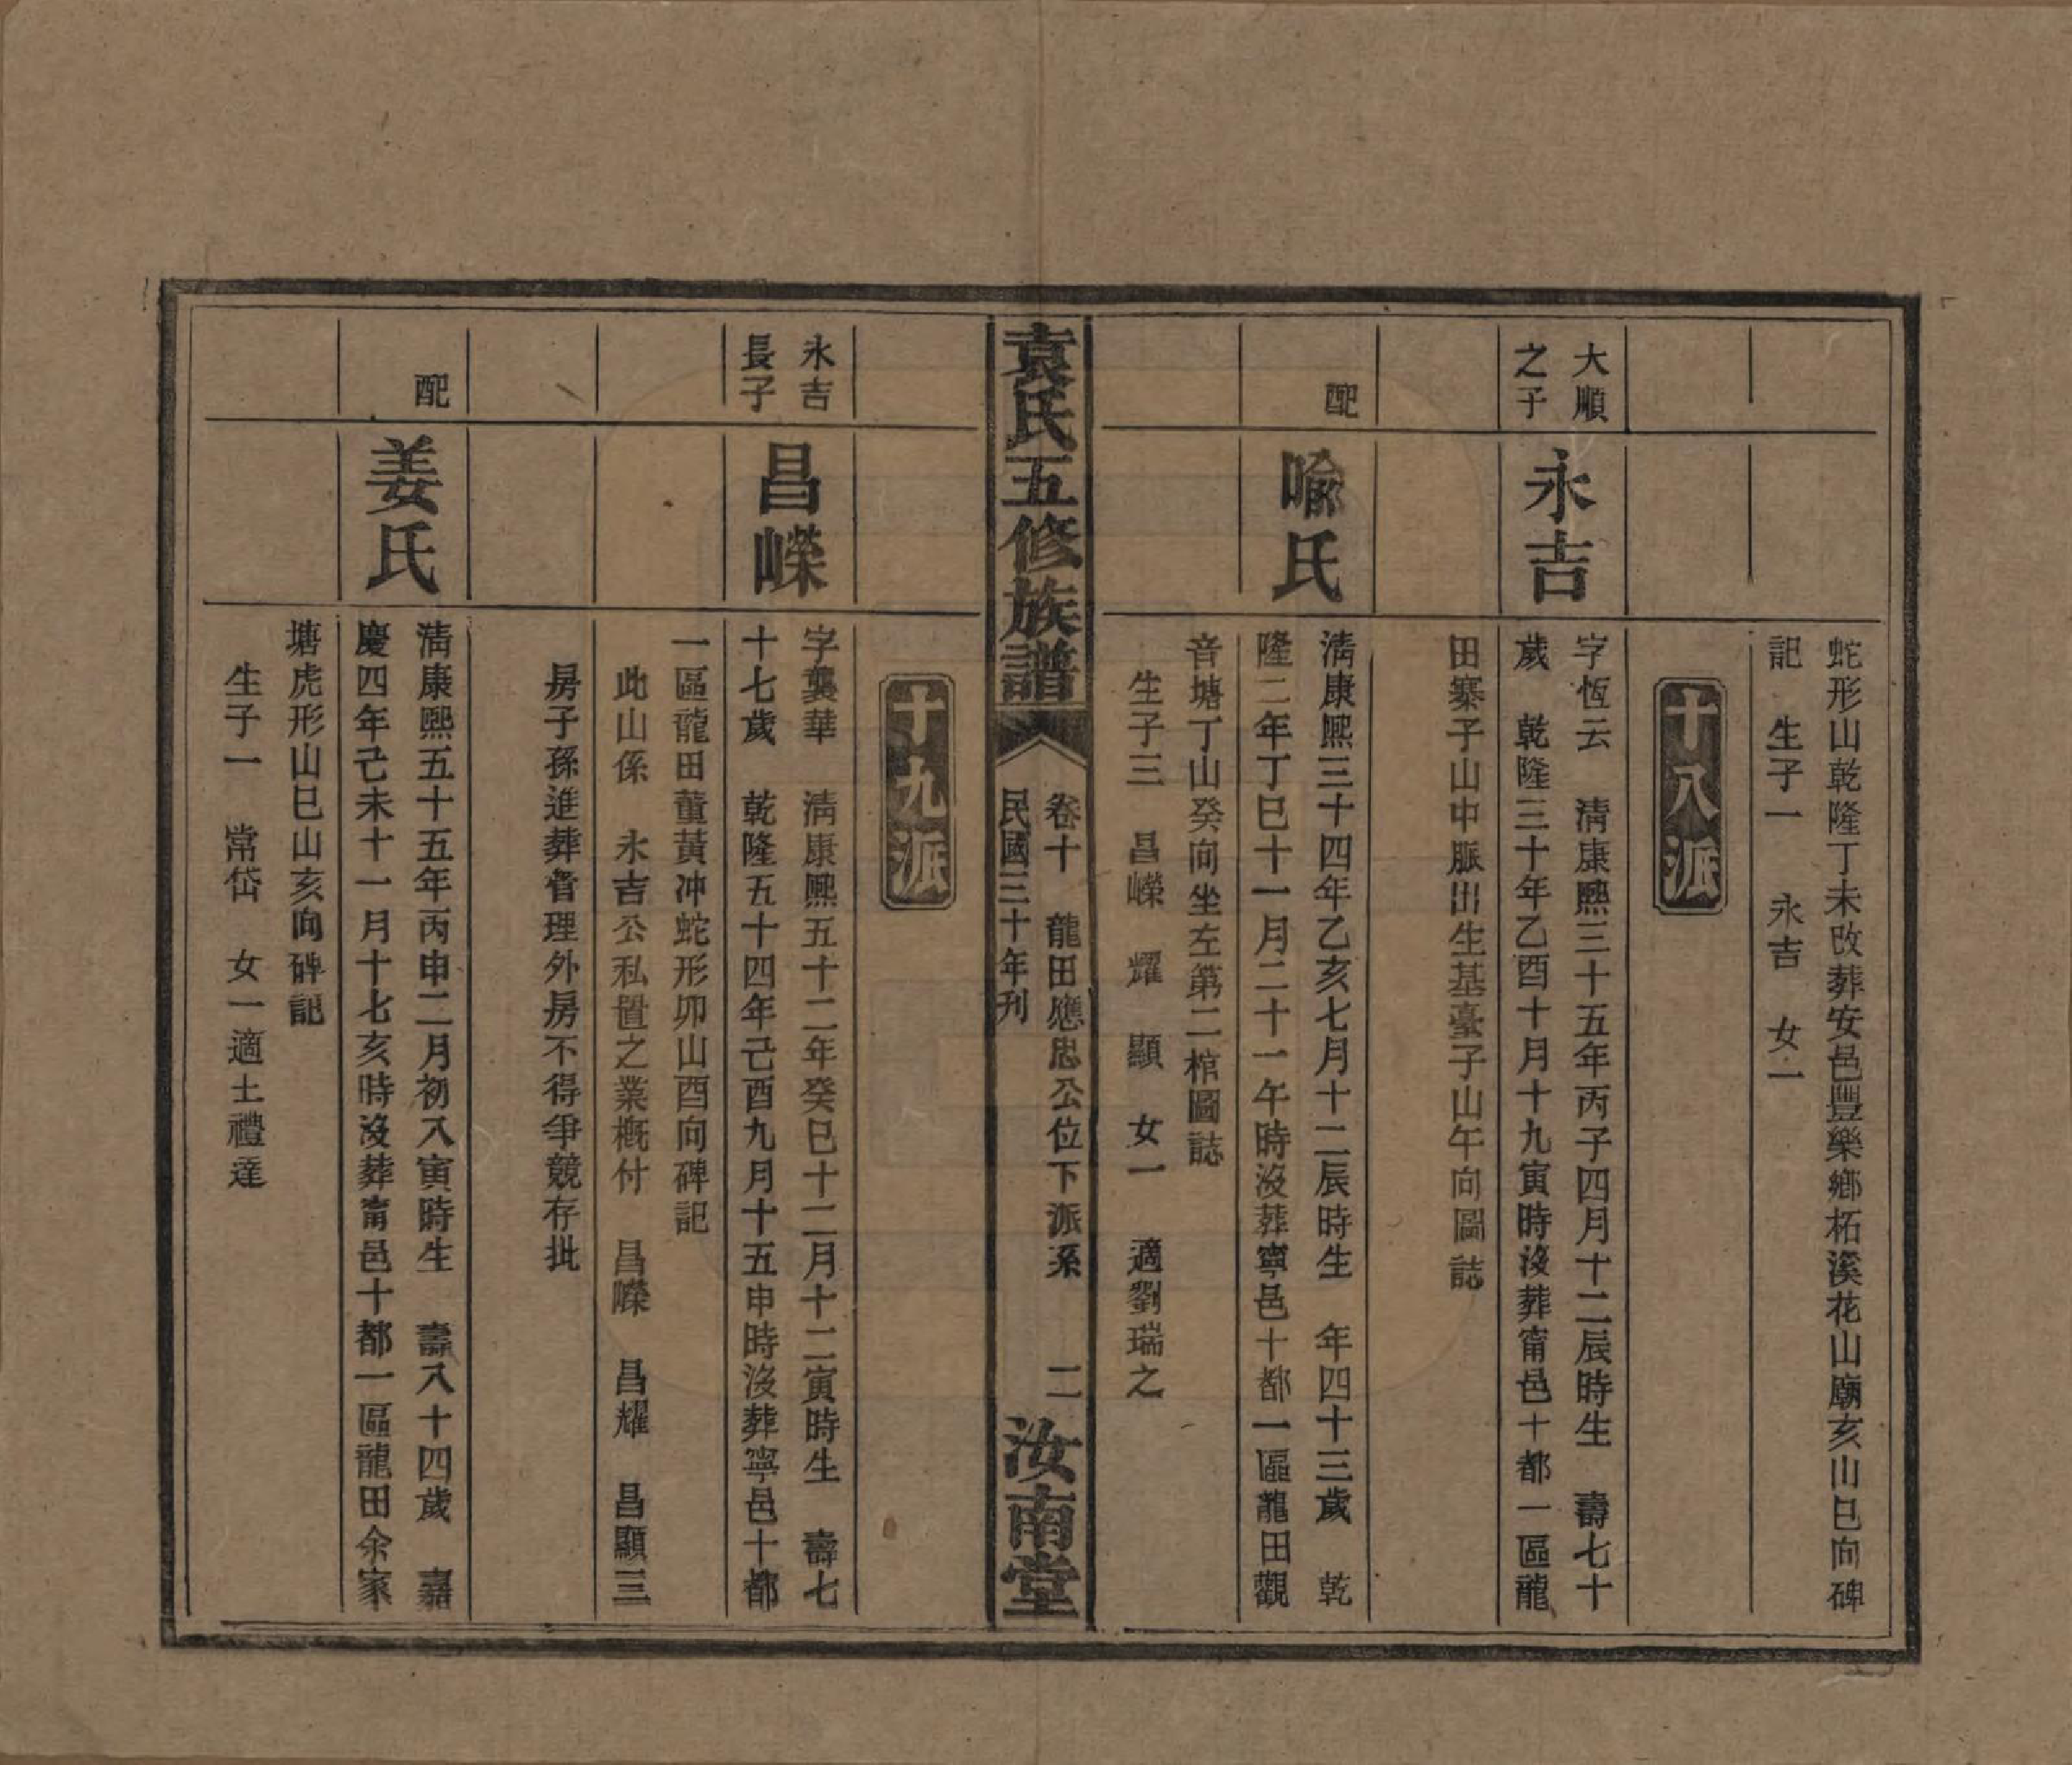 蛇形山乾隆丁未改葬安邑豐樂鄉柘溪花山廟亥山巳向碑
記　生子一　永吉　女一
十八派
大順
之子
永吉
字恆云　清康熙三十五年丙子四月十二辰時生　壽七十
歲　乾隆三十年乙酉十月十九寅時沒葬甯邑十都一區龍
田寨子山中脈出生基臺子山午向圖誌
配
喻氏
清康熙三十四年乙亥七月十二辰時生　年四十三歲　乾
隆二年丁巳十一月二十一午時沒葬寧邑十都一區龍田觀
音塘丁山癸向坐左第二棺圖誌
生子三　昌嶸　耀　顯　女一　適劉瑞之
袁氏五修族譜
卷十　龍田應忠公位下派系　二
民國三十年刊
汝南堂
十九派
永吉
長子
昌嶸
字襲華　清康熙五十二年癸巳十二月十二寅時生　壽七
十七歲　乾隆五十四年己酉九月十五申時沒葬寧邑十都
一區龍田董黃冲蛇形卯山酉向碑記
此山係　永吉公私置之業概付　昌嶸　昌耀　昌顯三
房子孫進葬管理外房不得爭競存批
配
姜氏
清康熙五十五年丙申二月初八寅時生　壽八十四歲　嘉
慶四年己未十一月十七亥時沒葬甯邑十都一區龍田余家
塘虎形山巳山亥向碑記
生子一　常岱　女一適王禮達